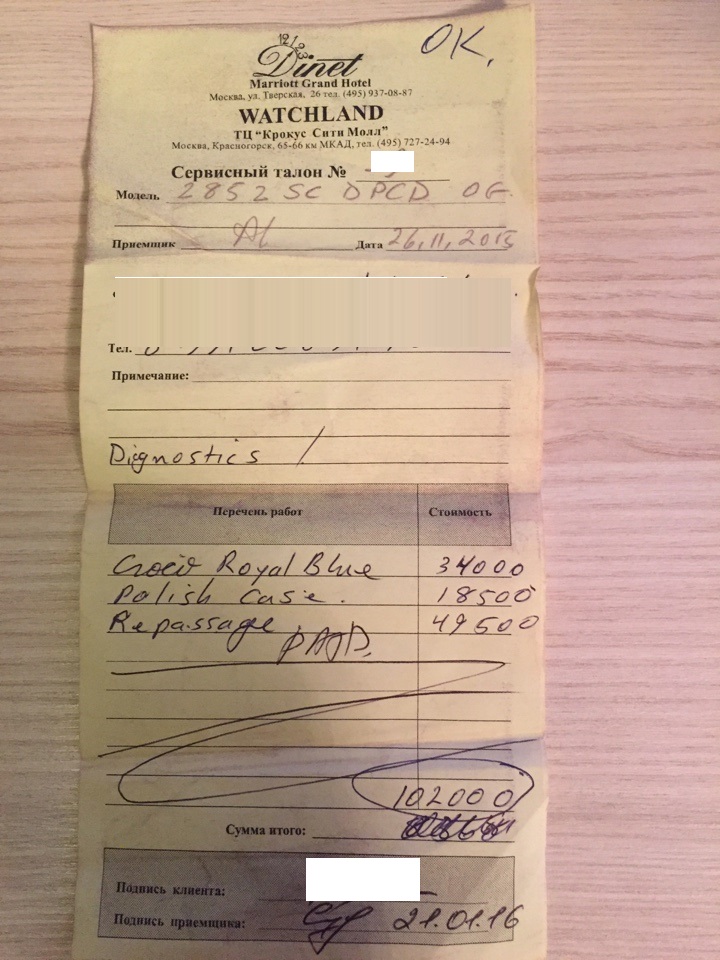 OK.
Dinet
Marriott Grand Hotel
Москва, ул. Тверская, 26 тел. (495) 937-08-87
WATCHLAND
ТЦ “Крокус Сити Молл”
Москва, Красногорск, 65-66 км МКАД, тел. (495) 727-24-94
Сервисный талон №
Модель 2852 SC DPCD OG
Приемщик Дата 26.11.2015
Тел.
Примечание:
Dignostics
Перечень работ Стоимость
Croco Royal Blue 34000
Polish Case. 18500
Repassage 49500
PAID.
102000
Сумма итого:
Подпись клиента:
Подпись приемщика: 21.01.16